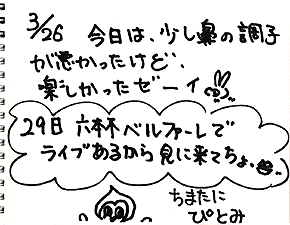 3/26 今日は、少し鼻の調子
が悪かったけど、
楽しかったゼーイ
29日 六本木ベルファーレで
ライブあるから見に来てちょ。
ちまたに
ぴとみ